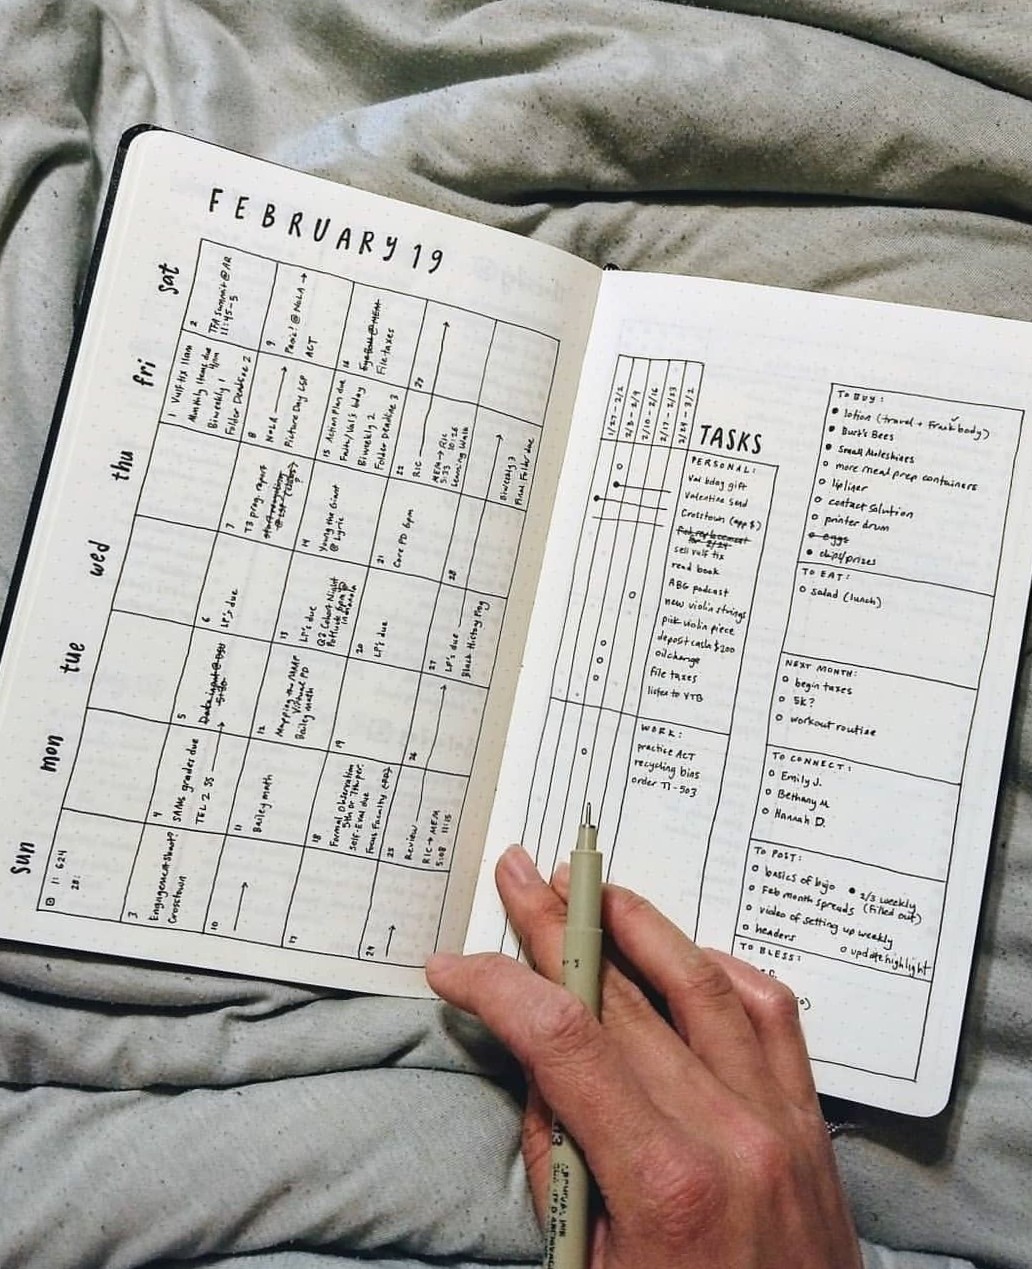 FEBRUARY 19
sun
mon
tue
wed
thu
fri
sat
11: 624
28:
1 Vulf tix 11am
Monthly items due
4pm
Biweekly 1
Folder Deadline 2
2
TFA Summit @ AR
11:45-5
3
Engagement Shoot?
Crosstown
4
SAMs grades due
TEL 2 SS →
5
Data input @ DSU
5:30
6
LP's due
7
T3 prog. appt
8
NOLA →
Picture Day LSP
9
@ NOLA →
ACT
10
→
11
Bailey math
12
Mapping the
Virtual PD
Bailey math
13
LP's due
Q2 Cohort Night
Potluck 6pm @
Indianola
14
Young the Giant
@ Lyric
15 Action Plan due
Faith/Val's bday
Biweekly 2
Folder Deadline 3
16
Eyeball @ MEM
File taxes
17
18
Formal Observation
5th or 7th per.
Self-Eval due
Focus Faculty
19
20
LP's due
21
Core PD 6pm
22
RIC
MEM → RIC
5:33 10:26
Leaning Walk
23
→
24
→
25
Review
RIC → MEM
5:08 11:15
26
27
LP's due
Black History Prog
28
Biweekly 3
Final Folder due
1/27 - 2/2
2/3 - 2/9
2/10 - 2/16
2/17 - 2/23
2/24 - 3/2
TASKS
PERSONAL:
Val bday gift
Valentine send
Crosstown (app $)
sell vulf tix
read book
ABG podcast
new violin strings
pick violin piece
deposit cash $200
oil change
file taxes
listen to YTB
WORK:
practice ACT
recycling bins
order TI-503
TO BUY:
lotion (travel + freak body)
Burt's Bees
Small Moleskines
more meal prep containers
lipliner
contact solution
printer drum
eggs
chips/prizes
TO EAT:
salad (lunch)
NEXT MONTH:
begin taxes
5k?
workout routine
TO CONNECT:
Emily J.
Bethany M
Hannah D.
TO POST:
basics of bujo
2/3 weekly
(filled out)
Feb month spreads
video of setting up weekly
headers
update highlight
TO BLESS: